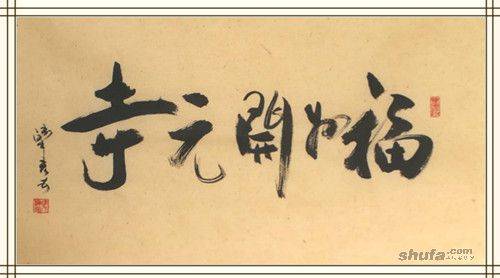 福州開元寺
shufa.com